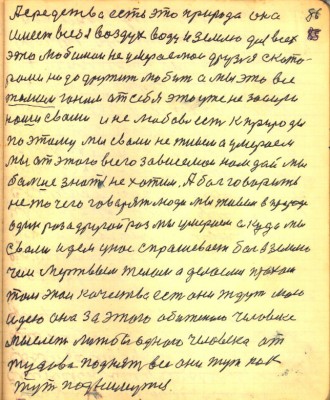 А средства есть это природа она 86
имеет себя воздух воду и землю для всех
это любимои не умераемои друзя с кото-
рыми надо дружит любит а мы это все
гоним от себя это уже не заводи
нами свами и не любови ест к природы
поэтому мы свами не живем а умераем
мы от этого всего зависемои нам даи мы
больше знат не хотим. А бог говорить
не то чего говорят люди мы живем в природе
один раз а другой раз мы умераем а куда мы
свами идем у нас спрашевает бог в землю
чем мертвым телом а делаеми прахом
том эти качества ест они ждут мою
идею она за этого обиженого человека
мыслет лижбы одного человека от
туда поднят все они тут как
тут подымутся.